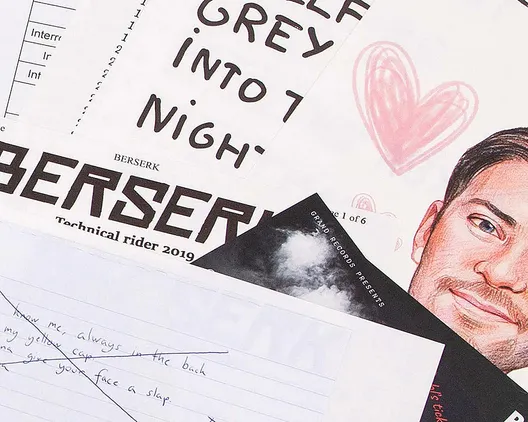 GREY
INTO
NIGH
Interr
BERSERK
BERSER
Technical rider 2019
1 of 6
GRAND RECORDS PRESENTS
knew me, always in the back
my yellow cap
give your face a slap.